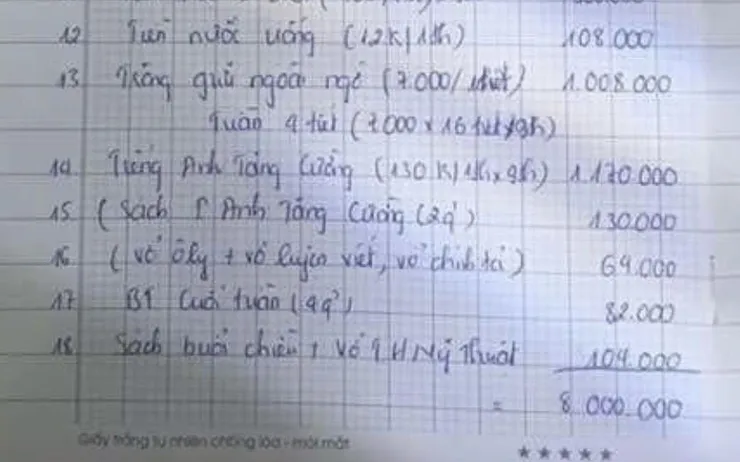 12 Tiền nước uống (12K/1th) 108.000
13 Tiếng quê ngoài ngõ (7.000/ tiết) 1.008.000
Tuần 4 tiết (7.000 x 16 tiết x 9th)
14 Tiếng Anh Tăng Cường (130K/1th x 9th) 1.170.000
15 (Sách T Anh Tăng Cường (2q) 130.000
16 (vở ôly + vở luyện viết, vở chính tả) 69.000
17 BT Cuối tuần (4q) 82.000
18 Sách buổi chiều + Vở TH Mỹ Thuật 104.000
= 8.000.000
Giấy trắng tự nhiên chống lóa - mỏi mắt